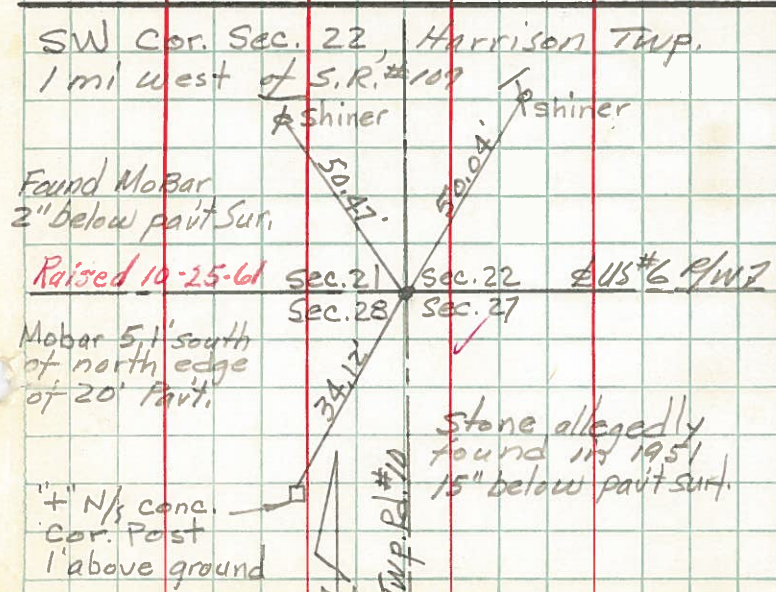 SW Cor. Sec. 22, Harrison Twp.
1 mi west of S.R.#109
shiner
shiner
50.47'
50.04'
Found MoBar
2" below pav't Sur.
Raised 10-25-61
Sec.21
Sec.22
℄ US#6 R/W
Sec.28
Sec.27
Mobar 5.1' south
of north edge
of 20' Pav't.
34.12'
Stone allegedly
found in 1951
15" below pav't surf.
"+" N/s conc.
Cor. Post
1' above ground
Twp. Rd.#10